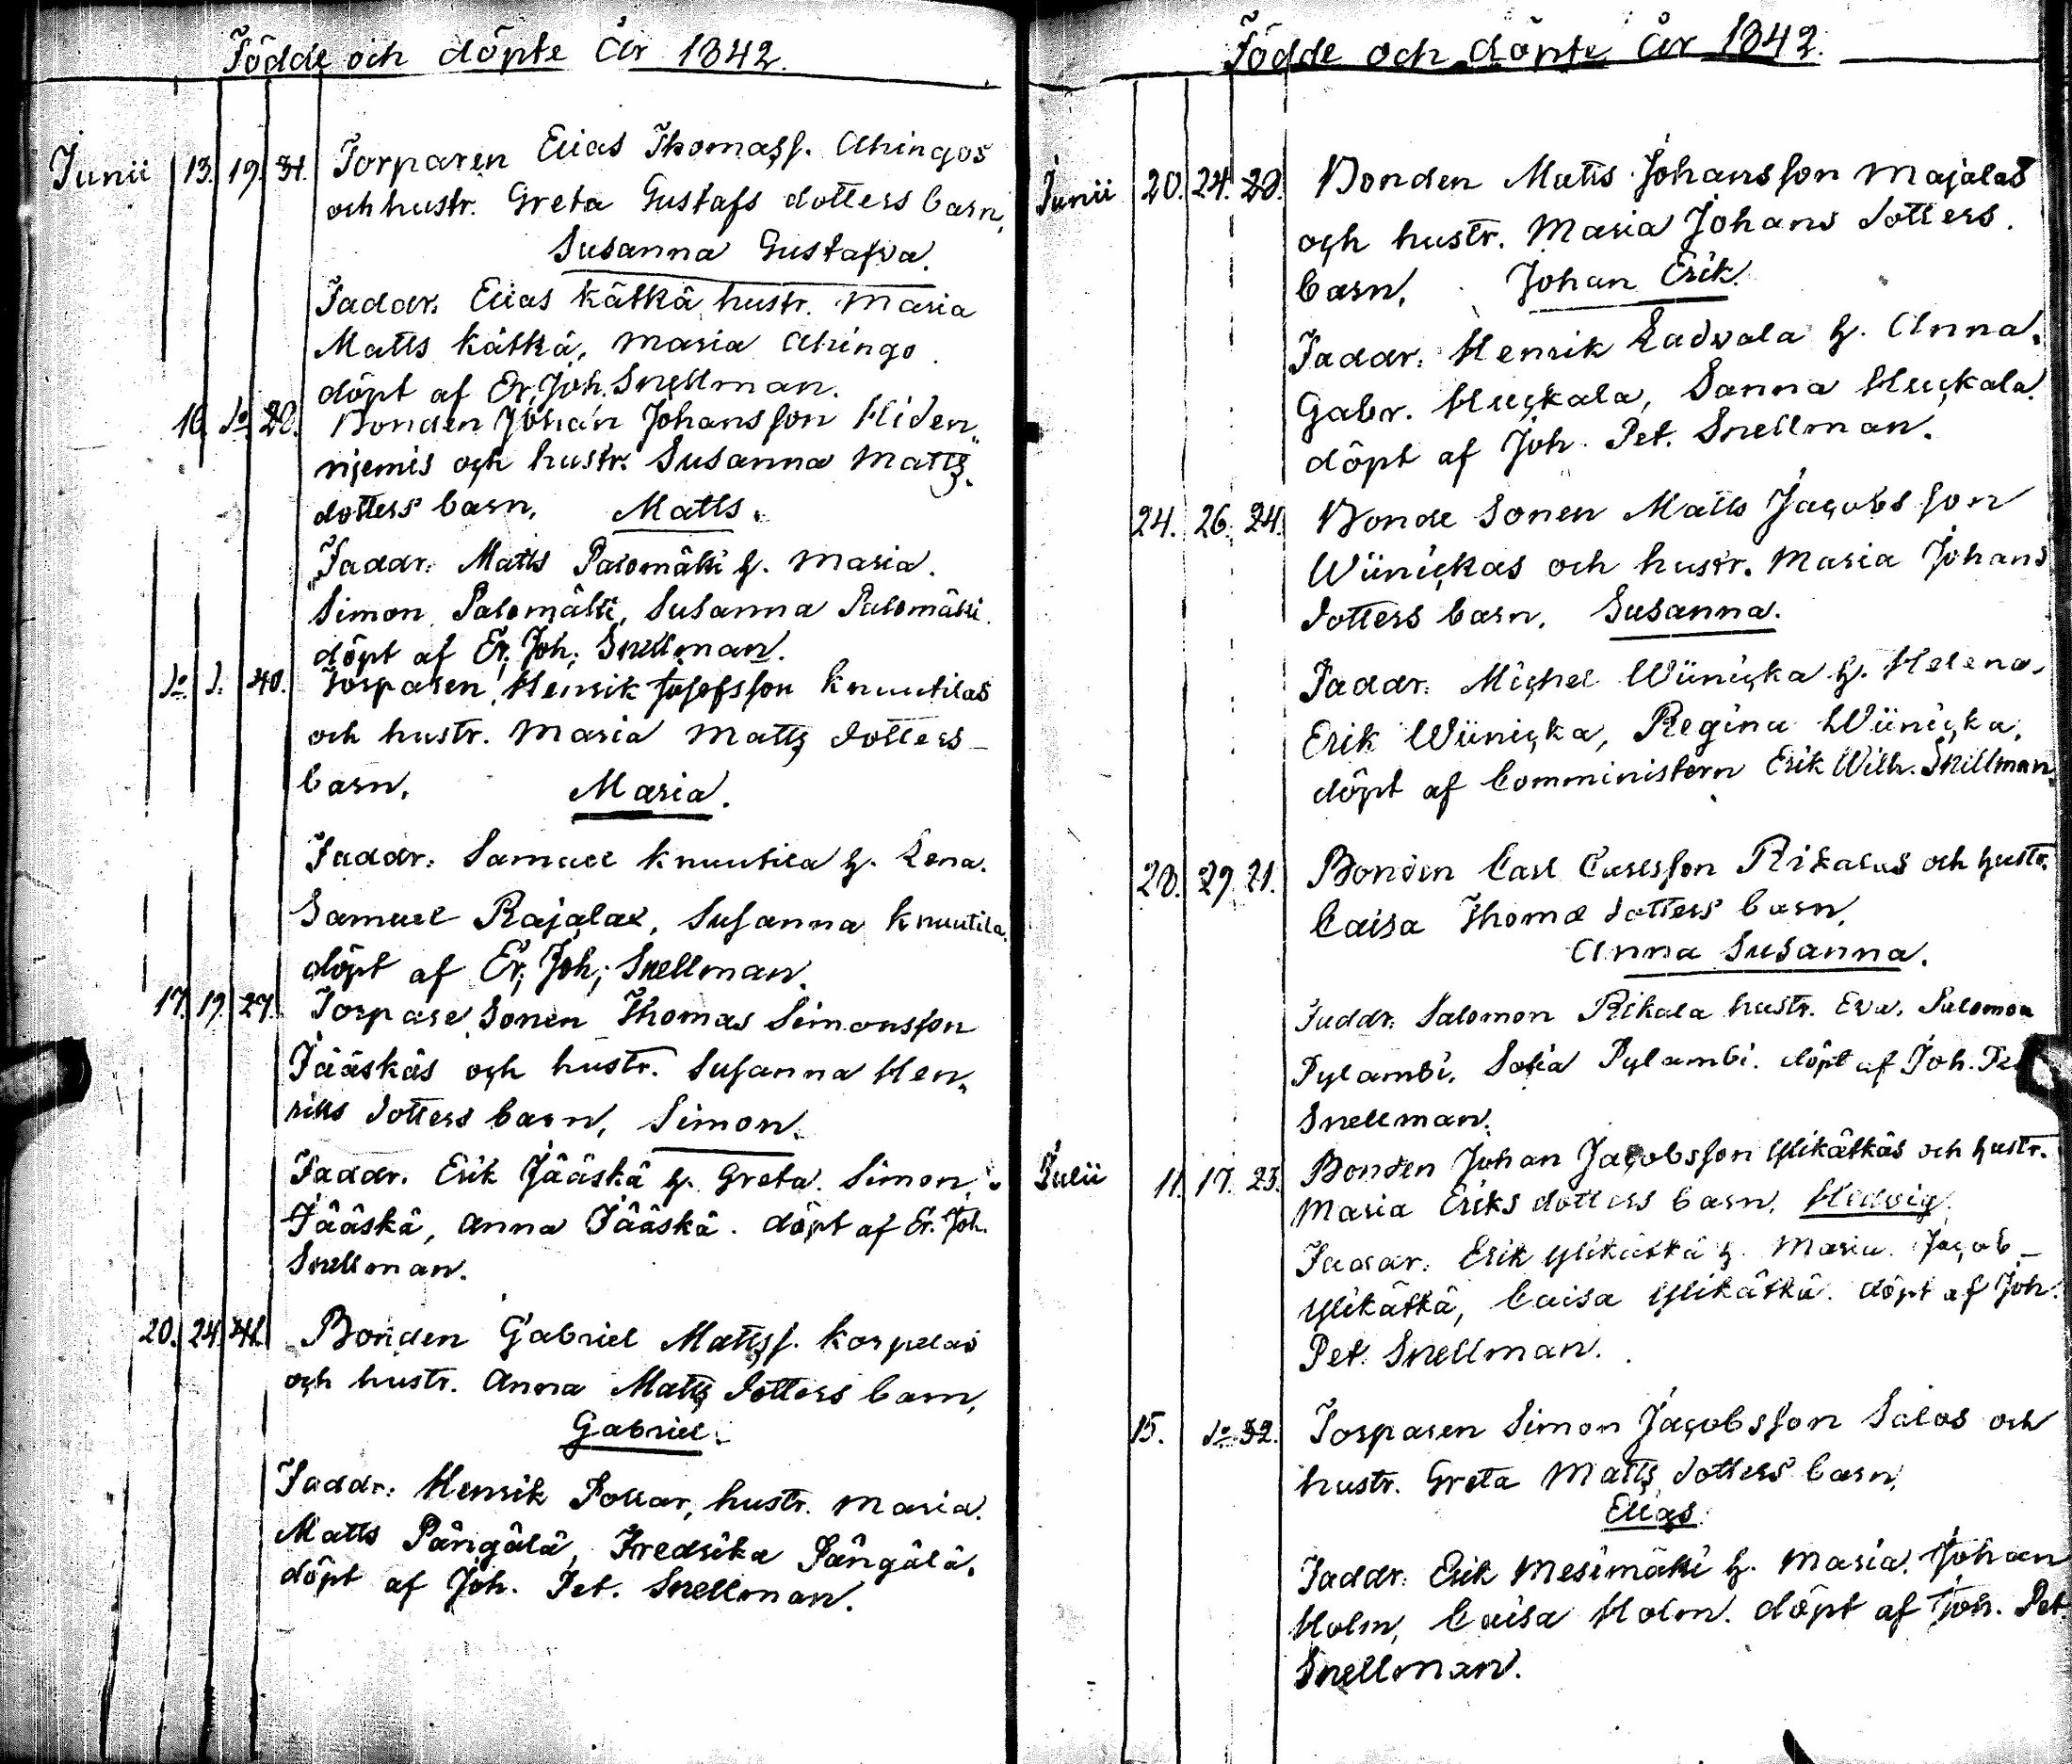 Födde och döpte År 1842.
Junii 13. 19. 31. Torparen Elias Thomass. Ahingos
och hustr. Greta Gustafs dotters barn,
Susanna Gustafva.
Faddr. Elias Kätkä hustr. Maria
Matts Kätkä, Maria Ahingo.
döpt af Er. Joh. Snellman.
16. do 28. Bonden Johan Johansson Hiden„
njemis och hustr. Susanna Matts
dotters barn, Matts.
Faddr: Matts Palomäki h. Maria.
Simon Palomäki, Susanna Palomäki.
döpt af Er. Joh; Snellman.
do d. 40. Torparen Henrik Josefsson Knuutilas
och hustr. Maria Matts dotters
barn, Maria.
Faddr: Samuel Knuutila h. Lena.
Samuel Rajalae, Susanna Knuutila.
döpt af Er; Joh; Snellman.
17. 19. 27. Torpare Sonen Thomas Simonsson
Jääskäs och hustr. Susanna Hen„
riks dotters barn, Simon.
Faddr. Erik Jääskä h. Greta. Simon
Jääskä, Anna Jääskä. döpt af Er. Joh.
Snellman.
20. 24. 41. Bonden Gabriel Mattss. Korpelas
och hustr. Anna Matts dotters barn,
Gabriel.
Faddr: Henrik Pollar, hustr. Maria.
Matts Pängälä, Fredrika Pängälä.
döpt af Joh. Pet. Snellman.
Födde och döpte År 1842.
Junii 20. 24. 28. Bonden Matts Johansson Majalas
och hustr. Maria Johans dotters
barn, Johan Erik.
Faddr: Henrik Ladvala h. Anna.
Gabr. Huckala, Sanna Huckala.
döpt af Joh. Pet. Snellman.
24. 26. 24. Bonde Sonen Matts Jacobsson
Wiinickas och hustr. Maria Johans
dotters barn, Susanna.
Faddr: Michel Wiinicka h. Helena,
Erik Wiinicka, Regina Wiinicka,
döpt af Comministern Erik Wilh. Snellman.
28. 29. 21. Bonden Carl Carlsson Rikalas och hustr.
Caisa Thomæ dotters barn,
Anna Susanna.
Faddr: Salomon Rikala hustr. Eva. Salomon
Pylambi. Sofia Pylambi. döpt af Joh. Pet
Snellman.
Julii 11. 17. 23. Bonden Johan Jacobsson Ylikätkäs och hustr.
Maria Eriks dotters barn, Hedvig.
Faddr: Erik Ylikätkä h. Maria. Jacob
Ylikätkä, Caisa Ylikätkä. döpt af Joh.
Pet. Snellman.
15. do 32. Torparen Simon Jacobsson Salos och
hustr. Greta Matts dotters barn,
Elias.
Faddr: Erik Mesimäki h. Maria. Johan
Holm, Caisa Holm. döpt af Joh. Pet
Snellman.